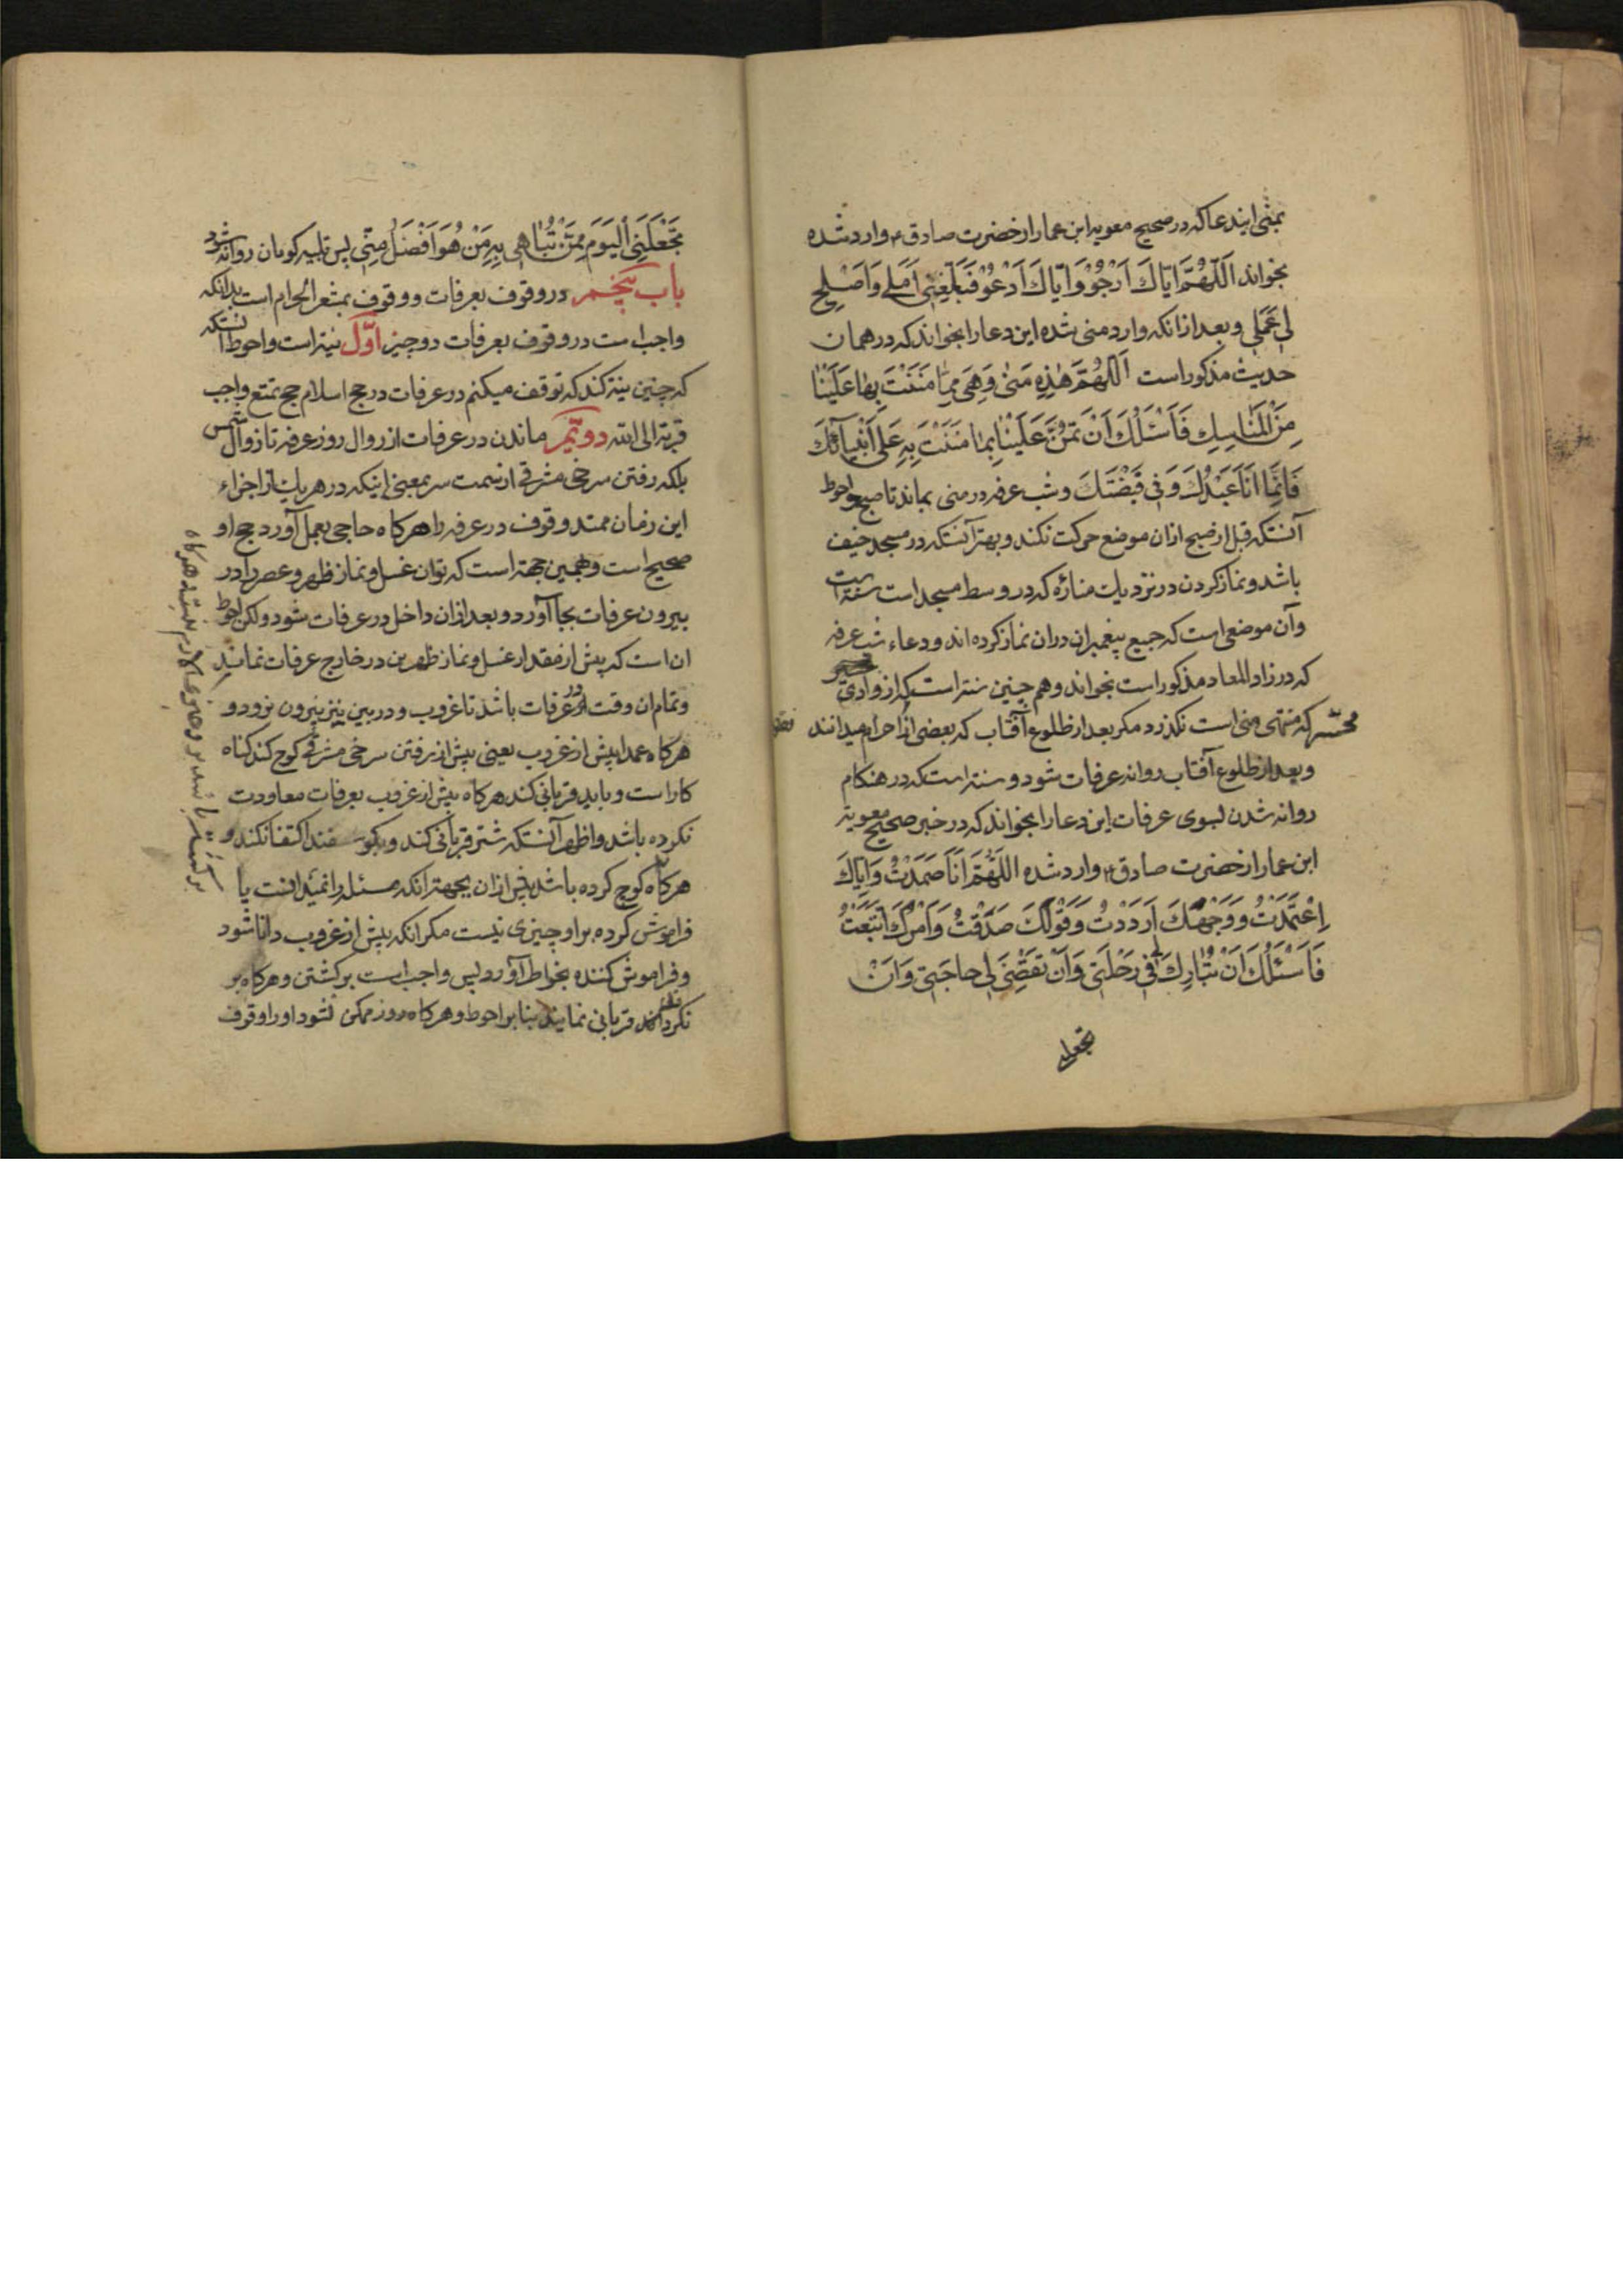 بمنی ایندعا که در صحیح معویه ابن عمار از حضرت صادق ع وارد شده
بخواند اَللّهُمَّ اِیّاکَ اَرْجُوْ وَ اِیّاکَ اَدْعُوْ فَبَلِّغْنی اَمَلی وَاَصْلِحْ
لی عَمَلی و بعد از انکه وارد منی شده این دعا را بخواند که در همان
حدیث مذکور است اَللّهُمَّ هٰذِهِ مَنیٰ وَهِیَ مِمّا مَنَنْتَ بِها عَلَیْنا
مِنَ الْمَناسِكِ فَاَسْئَلُكَ اَنْ تَمُنَّ عَلَیْنا بِما مَنَنْتَ بِهِ عَلی اَنْبِیآئِكَ
فَاِنَّما اَنَا عَبْدُكَ وَ فی قَبْضَتِكَ و شب عرفه در منی بماند تا صبح و احوط
آنستکه قبل از صبح ازان موضع حرکت نکند و بهتر آنستکه در مسجد خیف
باشد و نماز کردن در نزدیك مناره که در وسط مسجد است سنة است
وآن موضعی است که جمیع پیغمبران دران نماز کرده اند و دعاء شب عرفه
که در زاد المعاد مذکور است بخواند و هم چنین سنتر است که از وادی
محسّر که منتهی منی است نکذرد مکر بعد از طلوع آفتاب که بعضی انرا حرام میدانند
و بعد از طلوع آفتاب روانه عرفات شود و سنة است که در هنکام
روانه شدن لبسوی عرفات این دعا را بخواند که در خبر صحیح معویة
ابن عمار از حضرت صادق ع وارد شده اللّهُمَّ اِلَیْكَ صَمَدْتُ وَاِیّاكَ
اِعْتَمَدْتُ وَ وَجْهَكَ اَرَدْتُ وَ قَوْلَكَ صَدَّقْتُ وَ اَمْرَكَ اتَّبَعْتُ
فَاَسْئَلُكَ اَنْ تُبارِكَ لی فی رَحْلَتی وَاَنْ تَقْضِیَ لی حاجَتی وَ اَنْ
تجعلنی
تَجْعَلَنِی اَلْیَوْمَ مِمَّنْ تُباهی بِهِ مَنْ هُوَ اَفْضَلُ مِنّی پس تلبیه کویان روانه شود
باب پنجم در وقوف بعرفات و وقوف بمشعر الحرام است بدانکه
واجب است در وقوف بعرفات دو چیز اوّل نیة است و احوط انستکه
که چنین نیة کند که توقف میکنم در عرفات در حج اسلام حج تمتع واجب
قربة الی الله دویّم ماندن در عرفات از زوال روز عرفه تا زوال شمس
بلکه رفتن سرخی مشرقی از سمت سر بمعنی اینکه در هر یك از اجزاء
این زمان ممتد وقوف در عرفه را هرکاه حاجی بعمل آورد حج او
صحیح است و بهمین جهة است که توان غسل و نماز ظهر و عصر را در
بیرون عرفات بجا آورد و بعد ازان داخل در عرفات شود ولکن احوط
ان است که پیش از مقدار غسل و نماز ظهرین در خارج عرفات نماند
و تمام ان وقت در عرفات باشد تا غروب و در بین نیز بیرون نرود و
هرکاه عمدا پیش از غروب یعنی پیش از رفتن سرخی مشرقی کوچ کند کناه
کار است و باید قربانی کند هرکاه پیش از غروب بعرفات معاودت
نکرده باشد و اظهر آنستکه شتر قربانی کند و بکوسفند اکتفا نکند و
هرکاه کوچ کرده باشد پیش ازان بجهة آنکه مسئله را نمیدانست یا
فراموش کرده بر او چیزی نیست مکر انکه پیش از غروب دانا شود
و فراموش کننده بخاطر آورد پس واجب است برکشتن و هرکاه بر
نکردانند قربانی نمایند بنابر احوط و هرکاه در روز ممکن نشود او را وقوف